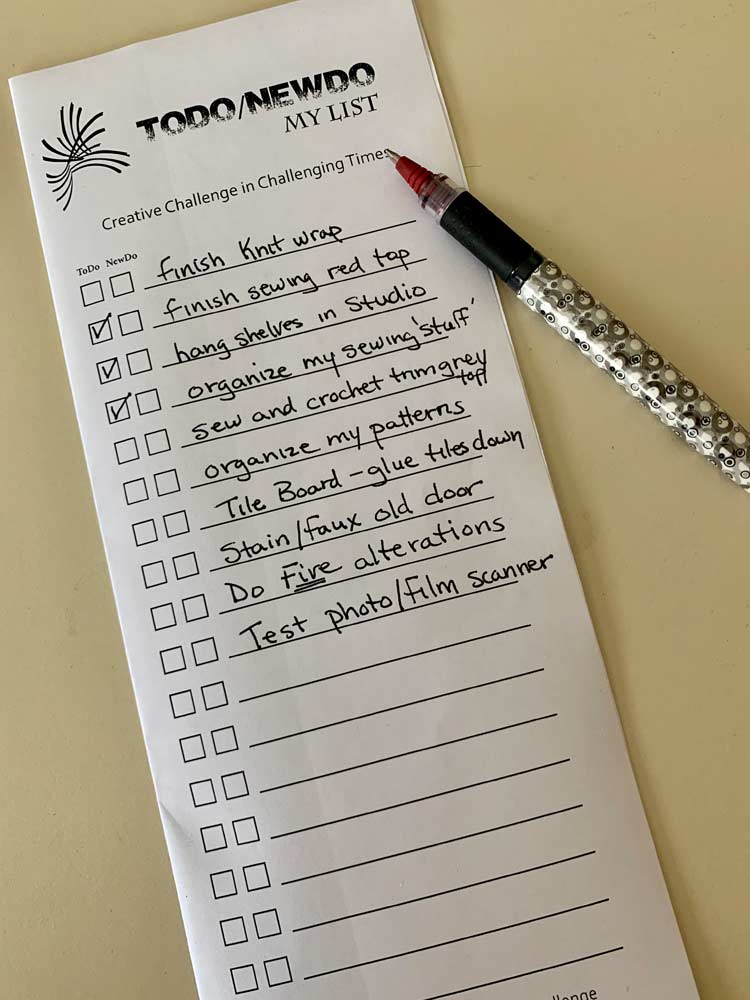 TODO/NEWDO
MY LIST
Creative Challenge in Challenging Times
ToDo NewDo
finish Knit wrap
finish sewing red top
hang shelves in Studio
organize my sewing 'stuff'
sew and crochet trim grey
top
organize my patterns
Tile Board - glue tiles down
Stain/faux old door
Do Five alterations
Test photo/film scanner